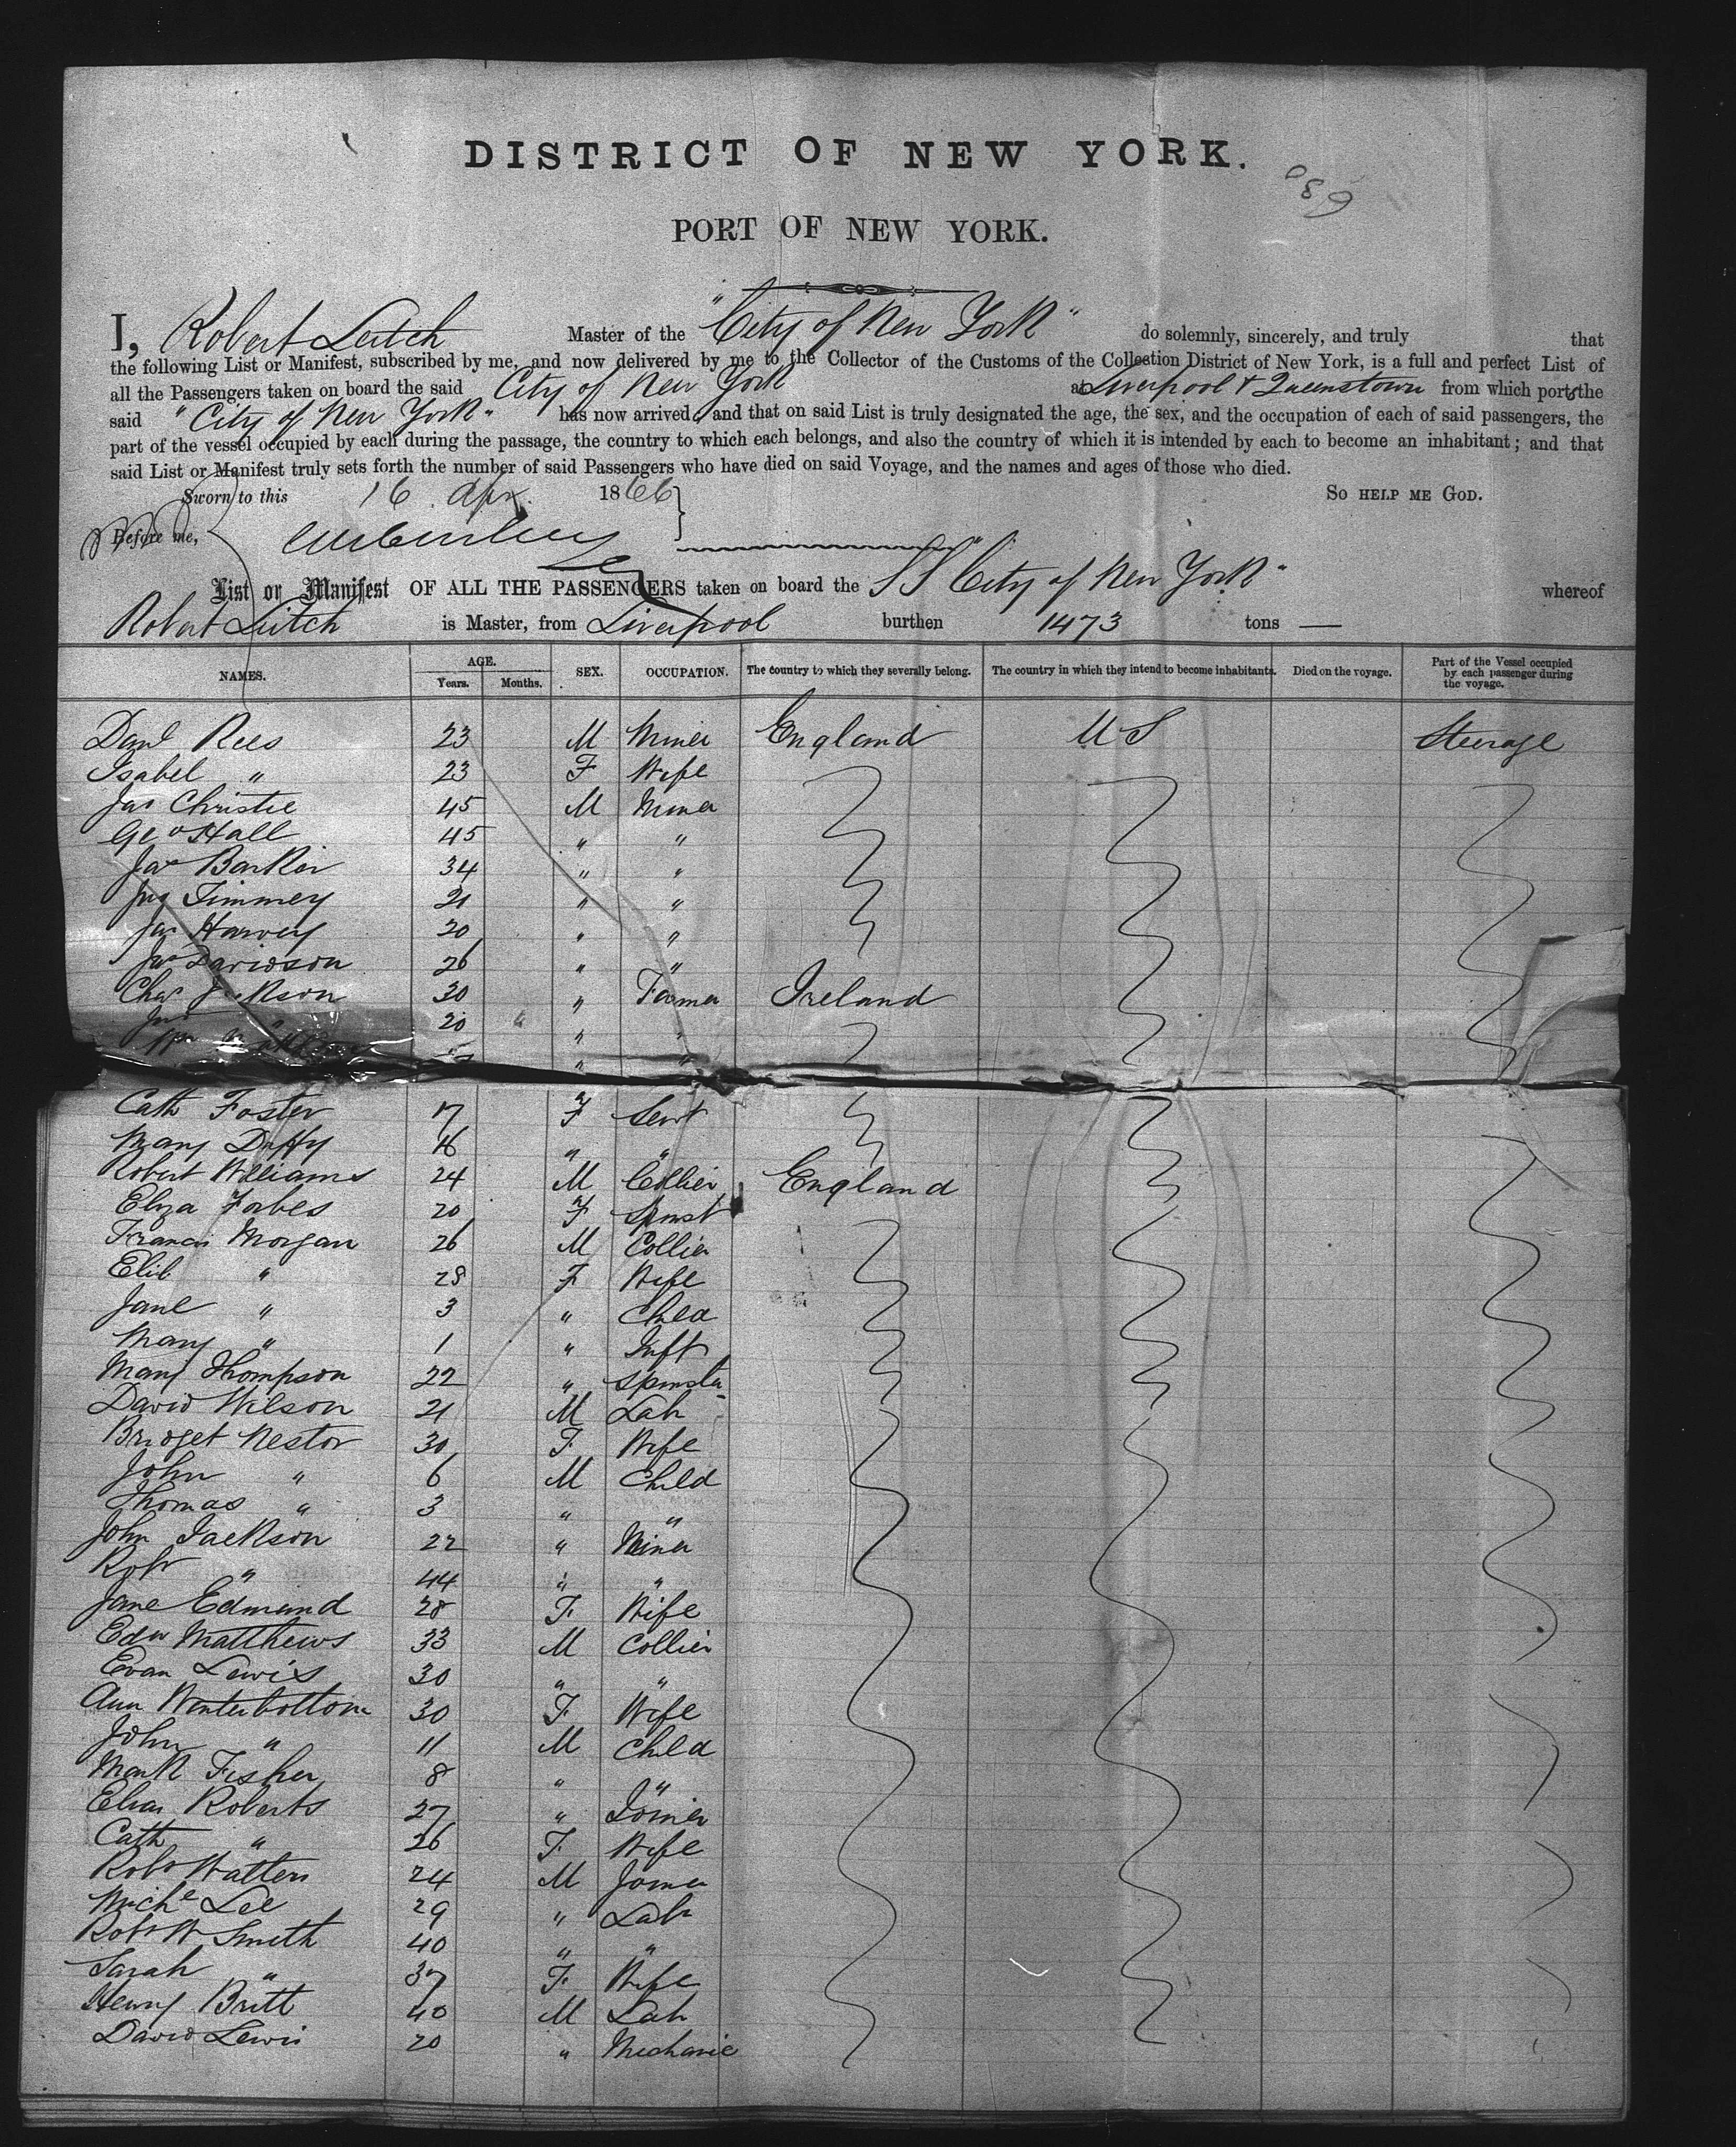 DISTRICT OF NEW YORK.
PORT OF NEW YORK.
I, Robert Leitch Master of the "City of New York" do solemnly, sincerely, and truly that
the following List or Manifest, subscribed by me, and now delivered by me to the Collector of the Customs of the Collection District of New York, is a full and perfect List of
all the Passengers taken on board the said City of New York at Liverpool & Queenstown from which ports the
said "City of New York" has now arrived, and that on said List is truly designated the age, the sex, and the occupation of each of said passengers, the
part of the vessel occupied by each during the passage, the country to which each belongs, and also the country of which it is intended by each to become an inhabitant; and that
said List or Manifest truly sets forth the number of said Passengers who have died on said Voyage, and the names and ages of those who died.
Sworn to this 16 Apr 1866 SO HELP ME GOD.
Before me,
List or Manifest OF ALL THE PASSENGERS taken on board the SS City of New York" whereof
Robert Leitch is Master, from Liverpool burthen 1473 tons —
NAMES. AGE. Years. Months. SEX. OCCUPATION. The country to which they severally belong. The country in which they intend to become inhabitants. Died on the voyage. Part of the Vessel occupied by each passenger during the voyage.
Danl Rees 23 M Miner England U S Steerage
Isabel " 23 F Wife
Jas Christie 45 M Miner
Geo Hall 45 " "
Jas Barker 34 " "
Jno Timmey 21 " "
Jas Harvey 20 " "
Jno Davidson 26 " "
Chas Jackson 30 " Farmer Ireland
Jno " 20 " "
Wm " "
Cath Foster 17 F Servt
Mary Duffy 16 " "
Robert Williams 24 M Collier England
Eliza Forbes 20 F Spinst
Francis Morgan 26 M Collier
Eliz " 28 F Wife
Jane " 3 " Child
Mary " 1 " Inft
Mary Thompson 22 " Spinster
David Wilson 21 M Lab
Bridget Nestor 30 F Wife
John " 6 M Child
Thomas " 3 " "
John Jackson 22 " Miner
Robt " 44 " "
Jane Edmund 28 F Wife
Edw Matthews 33 M Collier
Evan Lewis 30 " "
Ann Winterbottom 30 F Wife
John " 11 M Child
Mark Fisher 8 " "
Elias Roberts 27 " Joiner
Cath " 26 F Wife
Robt Watters 24 M Joiner
Michl Lee 29 " Lab
Robt W Smith 40 " "
Sarah " 37 F Wife
Henry Britt 40 M Lab
David Lewis 20 " Mechanic